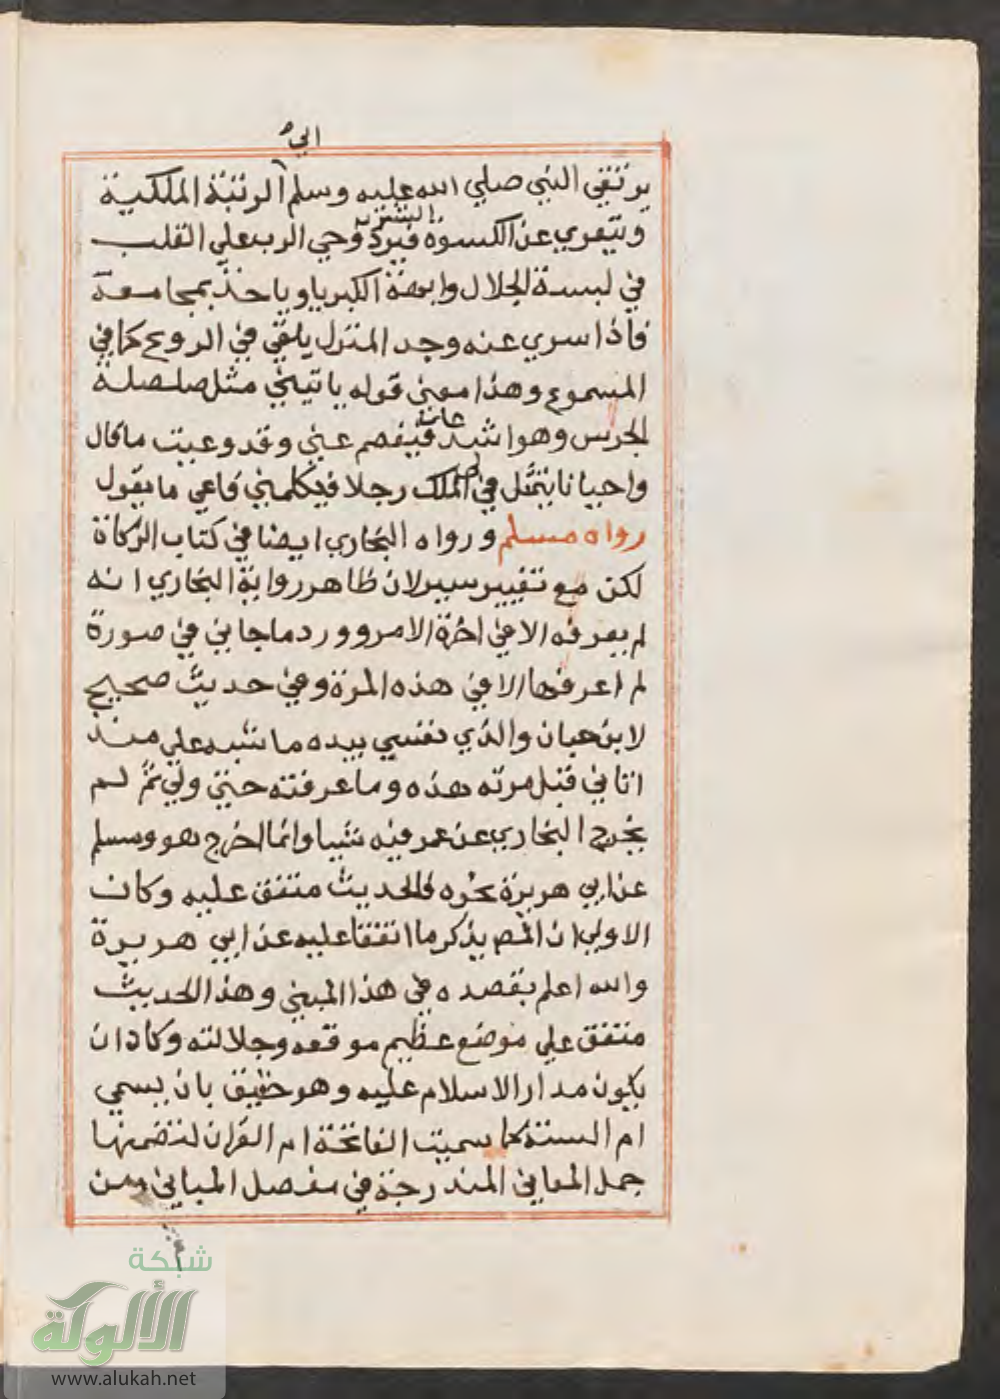 الي
يرتقي النبي صلي الله عليه وسلم الرتبة الملكية
ويتعري عن الكسوة البشرية فيرد وحي الرب علي القلب
في لبسة الجلال وابهة الكبريا وياخذ بمجامعه
فاذا سري عنه وجد المنزل يلقي في الروع كما في
المسموع وهذا معني قوله ياتيني مثل صلصلة
الجرس وهو اشد علي فيفصم عني وقد وعيت ما قال
واحيانا يتمثل لي الملك رجلا فيكلمني فاعي ما يقول
رواه مسلم ورواه البخاري ايضا في كتاب الزكاة
لكن مع تغيير سير لان ظاهر رواية البخاري انه
لم يعرفه الا في اخرة الامر وورد ما جاني في صورة
لم اعرفها الا في هذه المرة وفي حديث صحيح
لابن حبان والذي نفسي بيده ما شبه علي منذ
اتاني قبل مرته هذه وما عرفته حتي ولي ثم لم
يخرج البخاري عن عمر فيه شيا وانما اخرج هو ومسلم
عن ابي هريرة نحوه فالحديث متفق عليه وكان
الاولي ان المص يذكر ما اتفقا عليه عن ابي هريرة
والله اعلم بقصده في هذا المبني وهذا الحديث
متفق علي موضع عظيم موقعه وجلالته وكاد ان
يكون مدار الاسلام عليه وهو حقيق بان يسمي
ام السنة كما سميت الفاتحة ام القران لتضمنها
جمل المعاني المندرجة في مفصل المباني ومن
شبكة
الألوكة
www.alukah.net